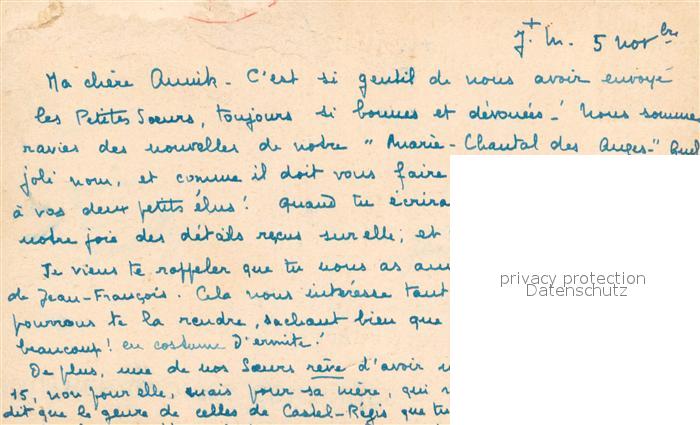 J.+ M. 5 nov bre
Ma chère Annik - C'est si gentil de nous avoir envoyé
les Petites Sœurs, toujours si bonnes et dévouées -! Nous sommes
ravies des nouvelles de notre " Marie - Chantal des Anges -" Quel
joli nom, et comme il doit vous faire
à vos deux petits élus! Quand tu écrira
notre joie des détails reçus sur elle; et
Je viens te rappeler que tu nous as
de Jean-François. Cela nous intéresse tant
pourrons te la rendre, sachant bien que
beaucoup! en costume d'ermite!
De plus, une de nos Sœurs rêve d'avoir
15, non pour elle, mais pour sa mère, qui
dit que le genre de celles de Castel-Régis que tu
privacy protection
Datenschutz